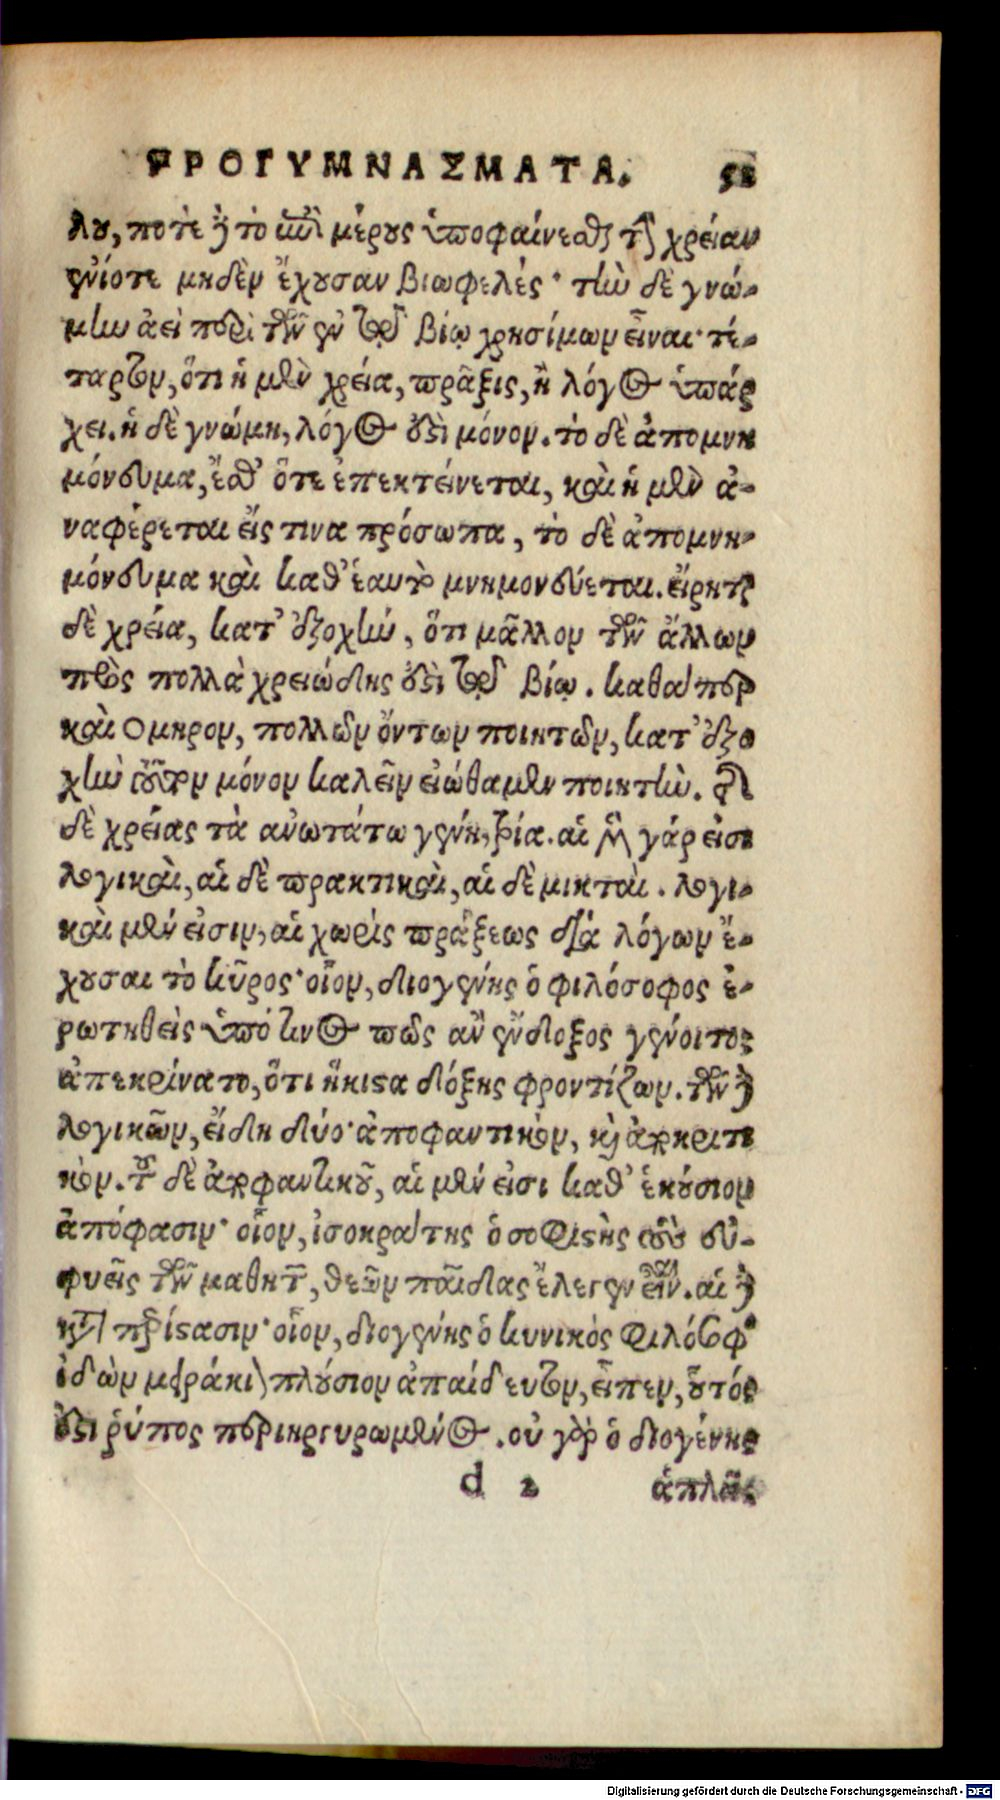 ΠΡΟΓΥΜΝΑΣΜΑΤΑ. 52
λου, ποτὲ δὲ τὸ ἐπὶ μέρους ὑποφαίνεσθαι τὴν χρείαν
ἐνίοτε μηδὲν ἔχουσαν βιωφελές· τὴν δὲ γνώ-
μην ἀεὶ περὶ τῶν ἐν τῷ βίῳ χρησίμων εἶναι· τέ-
ταρτον, ὅτι ἡ μὲν χρεία, πρᾶξις, ἢ λόγος ὑπάρ
χει. ἡ δὲ γνώμη, λόγος ἐστὶ μόνον. τὸ δὲ ἀπομνη
μόνευμα, ἔσθ' ὅτε ἐπεκτείνεται, καὶ ἡ μὲν ἀ-
ναφέρεται εἴς τινα πρόσωπα, τὸ δὲ ἀπομνη-
μόνευμα καὶ καθ' ἑαυτὸ μνημονεύεται. εἴρηται
δὲ χρεία, κατ' ἐξοχὴν, ὅτι μᾶλλον τῶν ἄλλων
πρὸς πολλὰ χρειώδης ἐστὶ τῷ βίῳ. καθάπερ
καὶ Ομηρον, πολλῶν ὄντων ποιητῶν, κατ' ἐξο
χὴν τοῦτον μόνον καλεῖν εἰώθαμεν ποιητήν. τῆς
δὲ χρείας τὰ ἀνωτάτω γένη, τρία. αἱ μὲν γάρ εἰσι
λογικαὶ, αἱ δὲ πρακτικαὶ, αἱ δὲ μικταί. λογι-
καὶ μέν εἰσιν, αἱ χωρὶς πράξεως διὰ λόγων ἔ-
χουσαι τὸ κῦρος· οἷον, διογένης ὁ φιλόσοφος ἐ-
ρωτηθεὶς ὑπό τινος πῶς ἂν ἔνδοξος γένοιτο,
ἀπεκρίνατο, ὅτι ἥκιστα δόξης φροντίζων. τῶν δὲ
λογικῶν, εἴδη δύο· ἀποφαντικὸν, καὶ ἀποκριτι
κόν. τοῦ δὲ ἀποφαντικοῦ, αἱ μέν εἰσι καθ' ἑκούσιον
ἀπόφασιν· οἷον, ἰσοκράτης ὁ σοφιστὴς τοὺς εὐ-
φυεῖς τῶν μαθητῶν, θεῶν παῖδας ἔλεγεν εἶναι. αἱ δὲ
κατὰ περίστασιν· οἷον, διογένης ὁ κυνικὸς φιλόσοφος
ἰδὼν μειράκιον πλούσιον ἀπαίδευτον, εἶπεν, οὗτός
ἐστι ῥύπος περιηργυρωμένος. οὐ γὰρ ὁ διογένης
d 2 ἁπλῶς
Digitalisierung gefördert durch die Deutsche Forschungsgemeinschaft - DFG